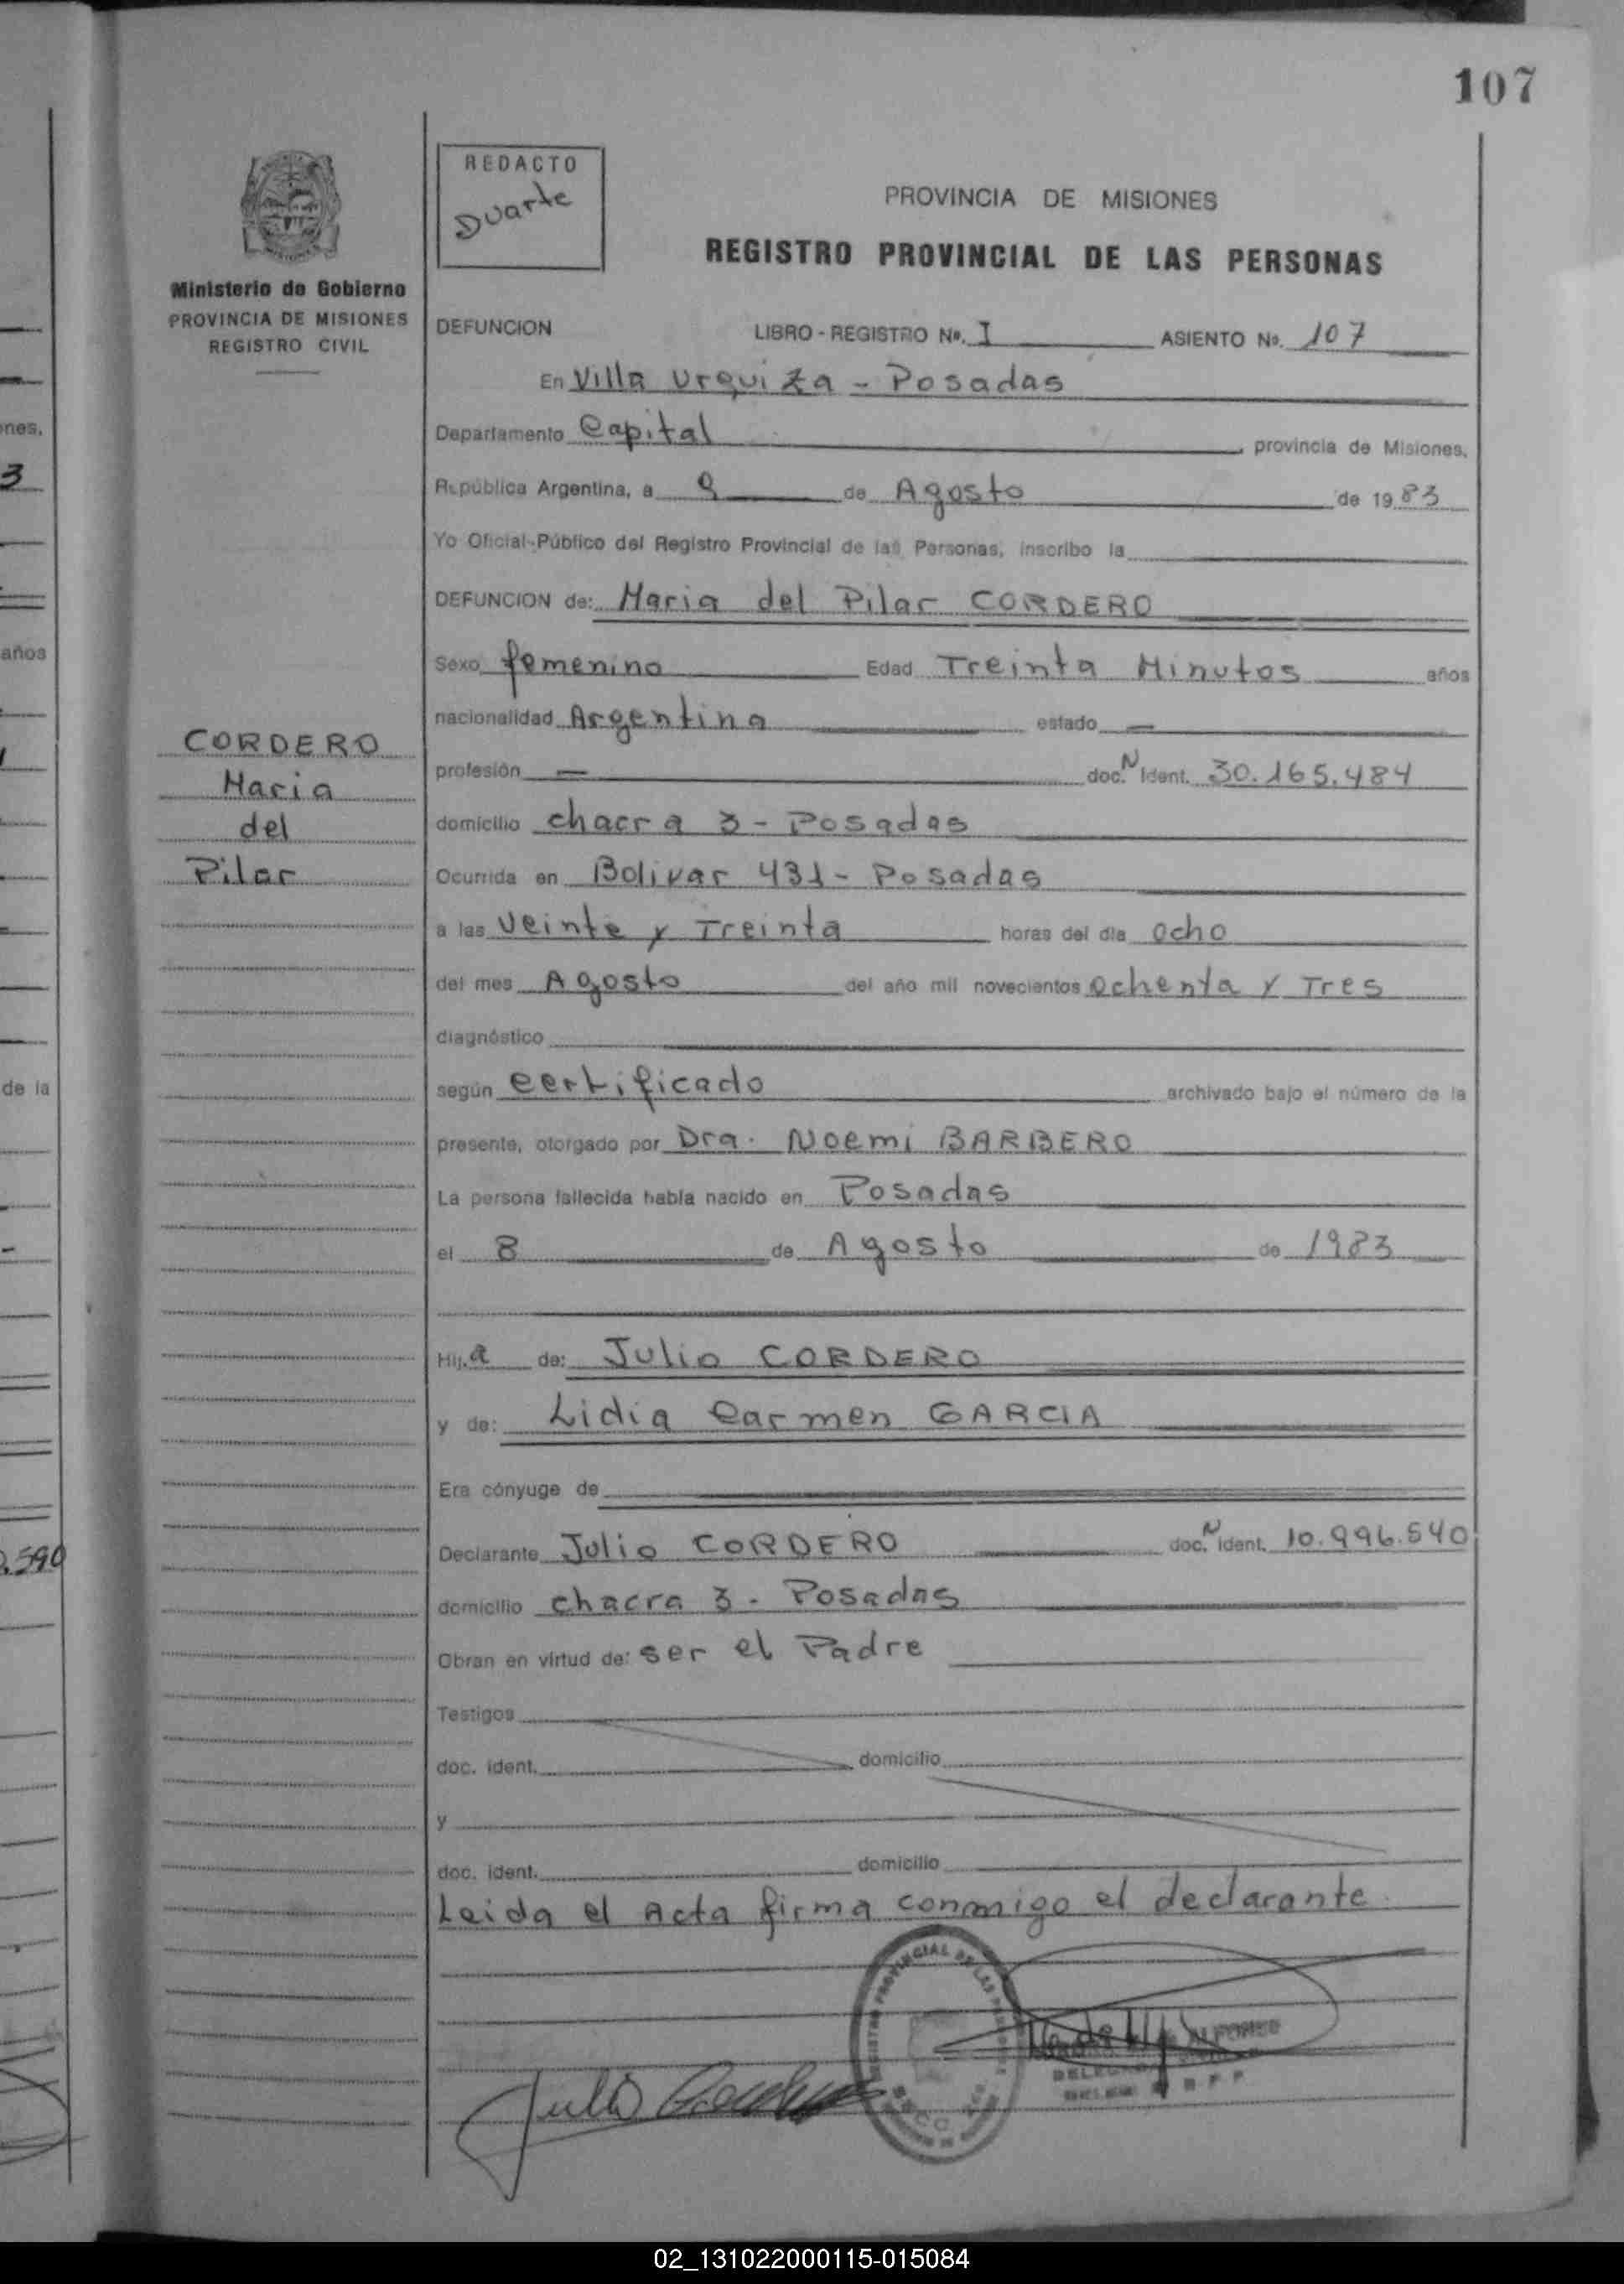 107
REDACTO
Duarte
PROVINCIA DE MISIONES
REGISTRO PROVINCIAL DE LAS PERSONAS
Ministerio de Gobierno
PROVINCIA DE MISIONES
REGISTRO CIVIL
DEFUNCION LIBRO - REGISTRO Nº. I ASIENTO Nº. 107
En Villa Urquiza - Posadas
Departamento Capital provincia de Misiones,
República Argentina, a 9 de Agosto de 1983
Yo Oficial-Público del Registro Provincial de las Personas, inscribo la
DEFUNCION de: Maria del Pilar CORDERO
Sexo femenino Edad Treinta Minutos años
nacionalidad Argentina estado —
profesión — doc. N Ident. 30.165.484
domicilio chacra 3 - Posadas
Ocurrida en Bolivar 431 - Posadas
a las Veinte y Treinta horas del día ocho
del mes Agosto del año mil novecientos ochenta y Tres
diagnóstico
según certificado archivado bajo el número de la
presente, otorgado por Dra. Noemi BARBERO
La persona fallecida había nacido en Posadas
el 8 de Agosto de 1983
Hij.a de: Julio CORDERO
y de: Lidia Carmen GARCIA
Era cónyuge de
Declarante Julio CORDERO doc. N ident. 10.996.540
domicilio chacra 3 - Posadas
Obran en virtud de: ser el Padre
Testigos
doc. ident. domicilio
y
doc. ident. domicilio
Leida el Acta firma conmigo el declarante.
CORDERO
Maria
del
Pilar
nes,
3
años
de la
.590
Julio
ALFONSO
02_131022000115-015084